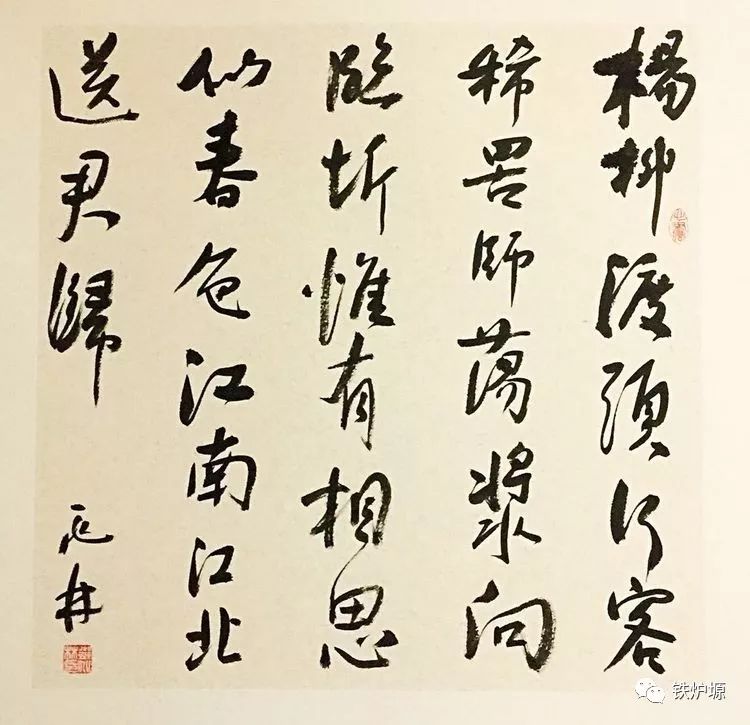 楊柳渡頭行客
稀罟師蕩槳向
臨圻惟有相思
似春色江南江北
送君歸
铁炉塬